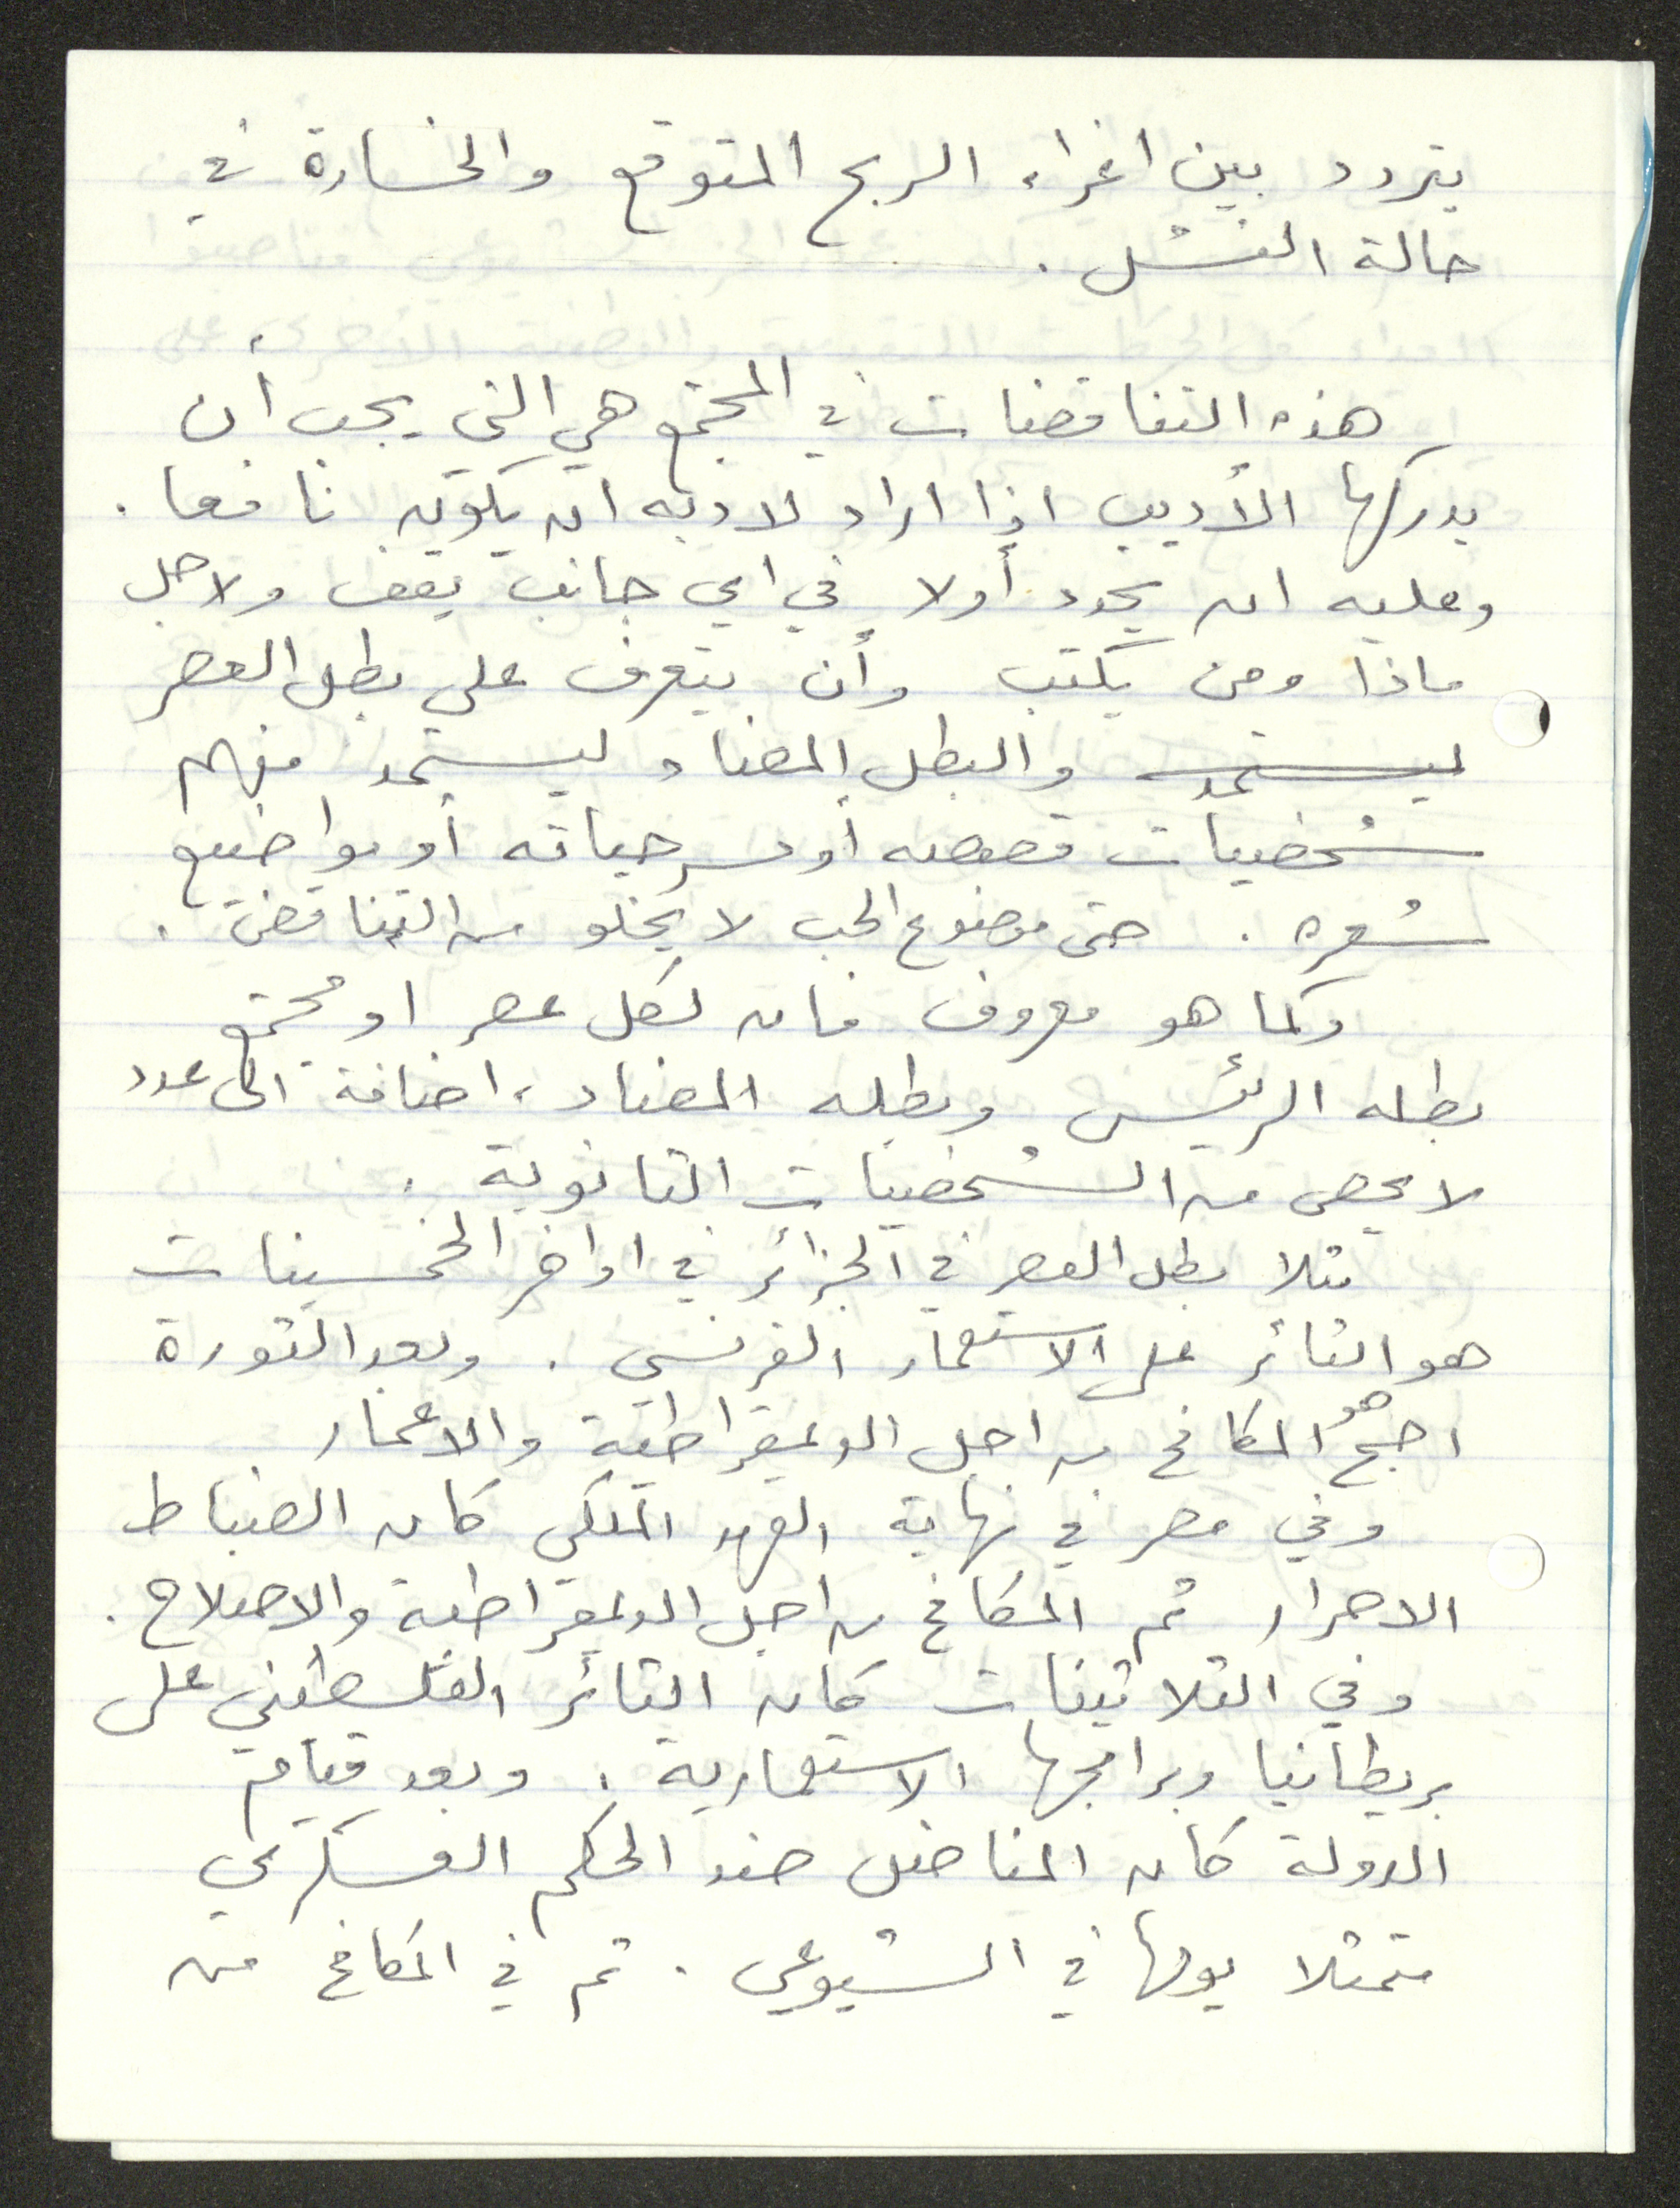 يتردد بين اغراء الربح المتوقع والخسارة في
حالة الفشل .
هذه التناقضات في المجتمع هي التي يجب أن
يدركها الأديب اذا اراد لادبه ان يكون نافعا .
وعليه ان يحدد أولا في اي جانب يقف ولاجل
ماذا ومن يكتب وأن يتعرف على بطل العصر
ليستمد والبطل المضاد ليستمد منهم
شخصيات قصصه أو مسرحياته أو مواضيع
شعره . حتى موضوع الحب لا يخلو من التناقض .
وكما هو معروف فان لكل عصر او مجتمع
بطله الرئيسي وبطله المضاد ، اضافة الى عدد
لا يحصى من الشخصيات الثانوية .
مثلا بطل العصر في الجزائر في اواخر الخمسينات
هو الثائر على الاستعمار الفرنسي . وبعد الثورة
اصبح هو المكافح من اجل الديمقراطية والاعمار
وفي مصر في نهاية العهد الملكي كان الضباط
الاحرار ثم المكافح من اجل الديمقراطية والاصلاح .
وفي الثلاثينات كان الثائر الفلسطيني على
بريطانيا وبرامجها الاستعمارية . وبعد قيام
الدولة كان المناضل ضد الحكم العسكري
متمثلا يومها في الشيوعي . ثم في المكافح من